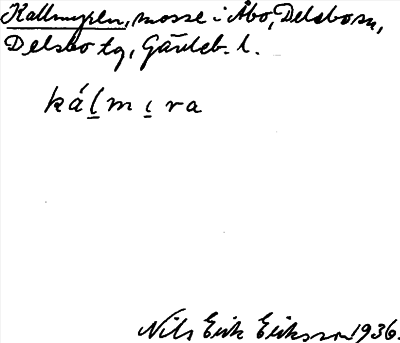 Kallmyren, mosse i Åbo, Delsbo sn,
Delsbo tg, Gävleb. l.
kálmıra
Nils Erik Eriksson 1936.